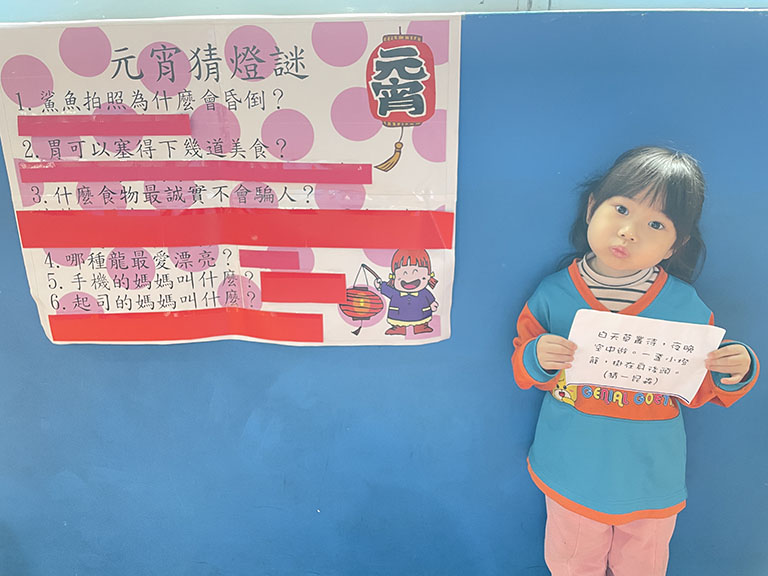 元宵猜燈謎
元宵
1.鯊魚拍照為什麼會昏倒？
2.胃可以塞得下幾道美食？
3.什麼食物最誠實不會騙人？
4.哪種龍最愛漂亮？
5.手機的媽媽叫什麼？
6.起司的媽媽叫什麼？
白天草叢蕩，夜晚
空中遊。一盞小燈
籠，掛在身後頭。
(猜一昆蟲)